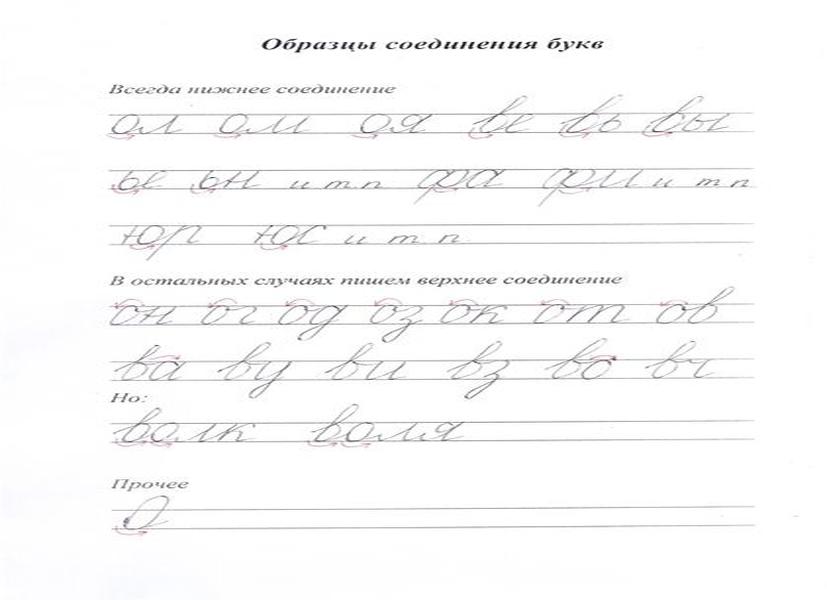 Образцы соединения букв
Всегда нижнее соединение
ол ом оя ве вь вы
ье ьн и т п фа фи и т п
юр юс и т п
В остальных случаях пишем верхнее соединение
он ог од оз ок от ов
ва ву ви вз во вг
Но:
волк воля
Прочее
О